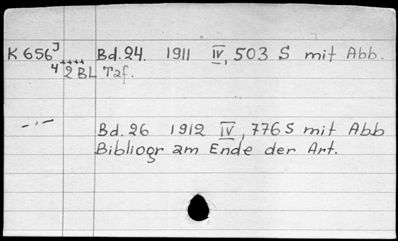 K 656 J/4 Bd. 24. 1911 IV, 503 S mit Abb.
2 BL Taf.
-"- Bd. 26 1912 IV, 776 S mit Abb
Bibliogr am Ende der Art.